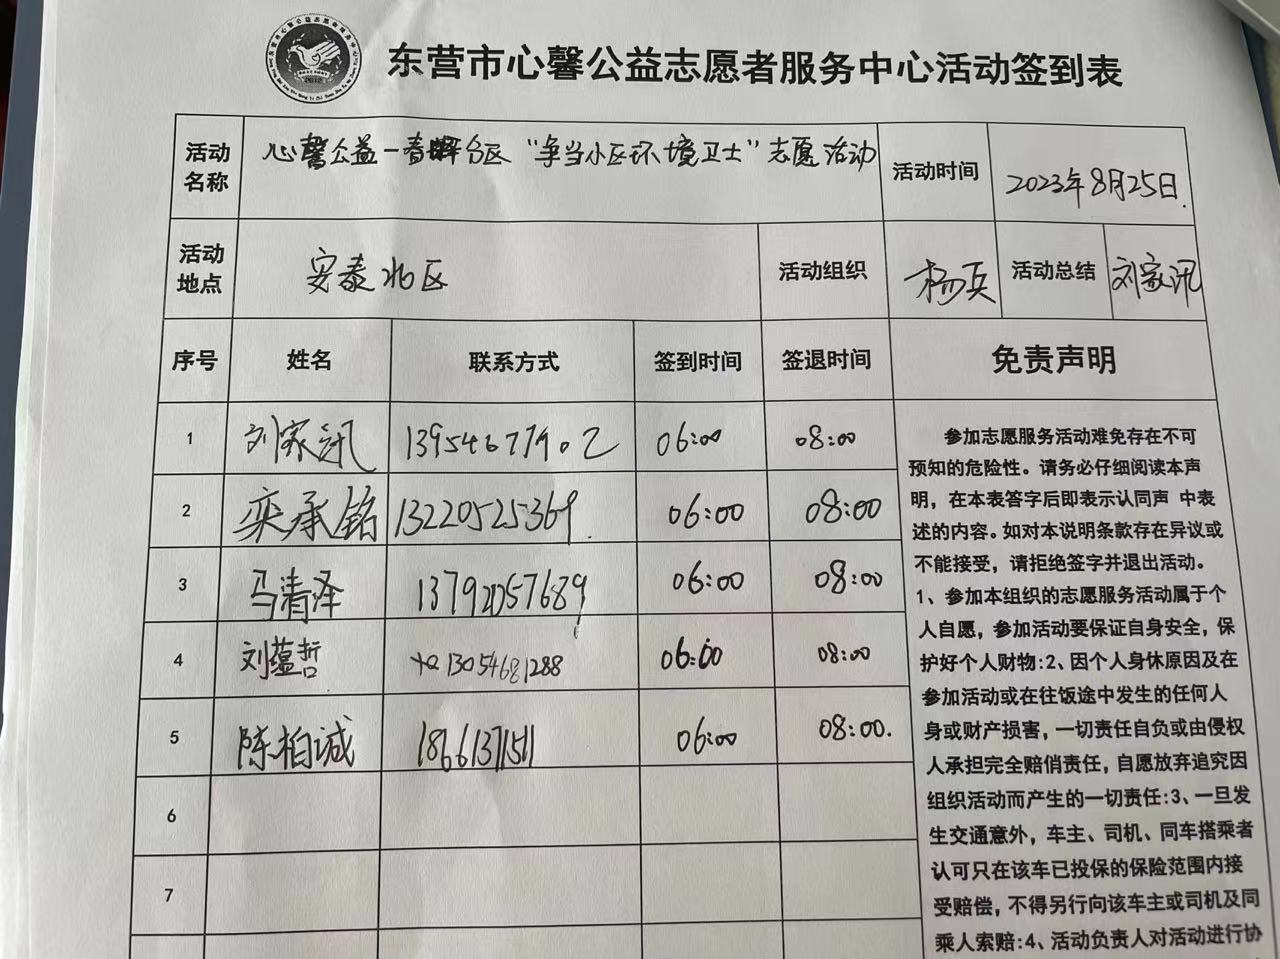 东营市心馨公益志愿者服务中心活动签到表
活动名称 心馨公益-春晖台区“争当小区环境卫士”志愿活动 活动时间 2023年8月25日.
活动地点 安泰北区 活动组织 杨兵 活动总结 刘家讯
序号 姓名 联系方式 签到时间 签退时间 免责声明
1 刘家讯 13954677902 06:00 08:00
2 栾承铭 13220525369. 06:00 08:00
3 马清泽 13792057689 06:00 08:00
4 刘蕴哲 13054681288 06:00 08:00
5 陈柏诚 18661371511 06:00 08:00.
6
7
参加志愿服务活动难免存在不可
预知的危险性。请务必仔细阅读本声
明，在本表答字后即表示认同声 中表
述的内容。如对本说明条款存在异议或
不能接受，请拒绝签字并退出活动。
1、参加本组织的志愿服务活动属于个
人自愿，参加活动要保证自身安全，保
护好个人财物:2、因个人身休原因及在
参加活动或在往饭途中发生的任何人
身或财产损害，一切责任自负或由侵权
人承担完全赔俏责任，自愿放弃追究因
组织活动而产生的一切责任:3、一旦发
生交通意外，车主、司机、同车搭乘者
认可只在该车已投保的保险范围内接
受赔偿，不得另行向该车主或司机及同
乘人索赔:4、活动负责人对活动进行协